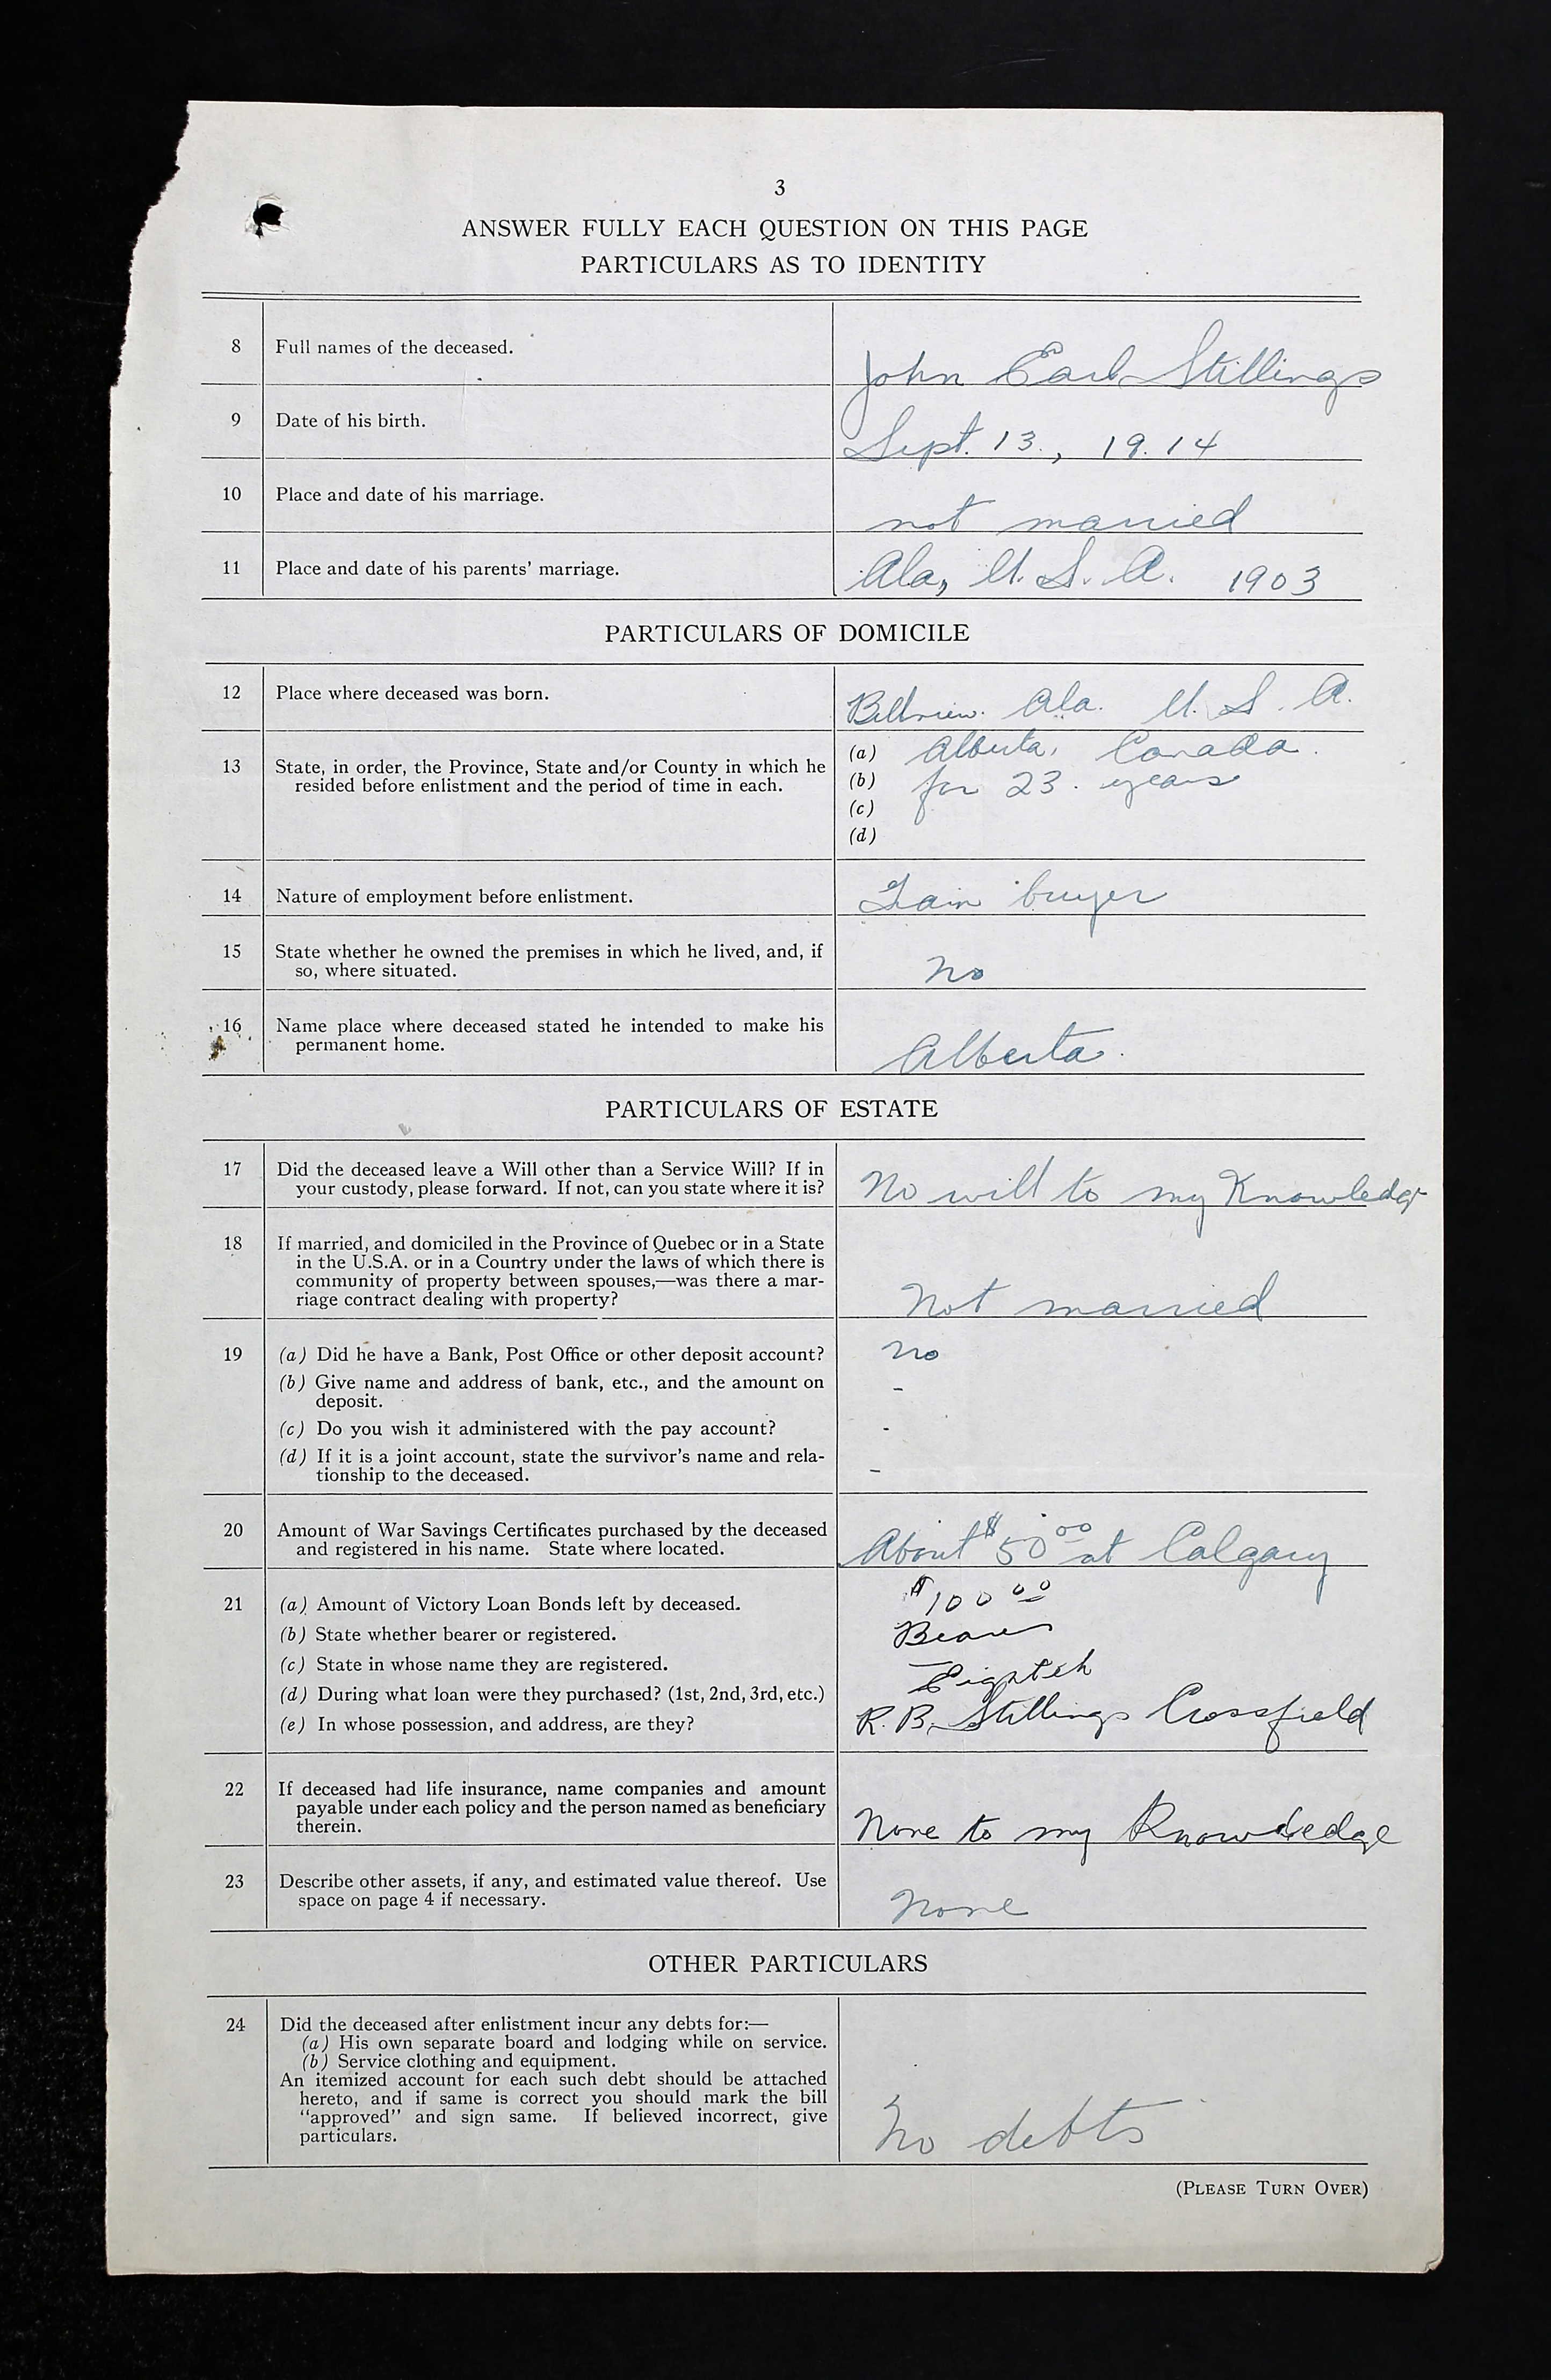 3
ANSWER FULLY EACH QUESTION ON THIS PAGE
PARTICULARS AS TO IDENTITY
8 Full names of the deceased. John Earl Stillings
9 Date of his birth. Sept. 13., 19.14
10 Place and date of his marriage. not married
11 Place and date of his parents' marriage. Ala, U. S. A. 1903
PARTICULARS OF DOMICILE
12 Place where deceased was born. Bellview. Ala. U. S. A.
13 State, in order, the Province, State and/or County in which he
resided before enlistment and the period of time in each.
(a) Alberta, Canada.
(b) for 23. years
(c)
(d)
14 Nature of employment before enlistment. Grain buyer
15 State whether he owned the premises in which he lived, and, if
so, where situated. No
16 Name place where deceased stated he intended to make his
permanent home. Alberta.
PARTICULARS OF ESTATE
17 Did the deceased leave a Will other than a Service Will? If in
your custody, please forward. If not, can you state where it is? No will to my Knowledge
18 If married, and domiciled in the Province of Quebec or in a State
in the U.S.A. or in a Country under the laws of which there is
community of property between spouses,—was there a mar-
riage contract dealing with property? Not married
19 (a) Did he have a Bank, Post Office or other deposit account? no
(b) Give name and address of bank, etc., and the amount on -
deposit.
(c) Do you wish it administered with the pay account? -
(d) If it is a joint account, state the survivor's name and rela- -
tionship to the deceased.
20 Amount of War Savings Certificates purchased by the deceased
and registered in his name. State where located. About $50.00 at Calgary
21 (a) Amount of Victory Loan Bonds left by deceased. $100 00
(b) State whether bearer or registered. Bearer
(c) State in whose name they are registered. —
(d) During what loan were they purchased? (1st, 2nd, 3rd, etc.) Eighteh
(e) In whose possession, and address, are they? R. B. Stillings Crossfield
22 If deceased had life insurance, name companies and amount
payable under each policy and the person named as beneficiary
therein. None to my Knowledge
23 Describe other assets, if any, and estimated value thereof. Use
space on page 4 if necessary. None
OTHER PARTICULARS
24 Did the deceased after enlistment incur any debts for:—
(a) His own separate board and lodging while on service.
(b) Service clothing and equipment.
An itemized account for each such debt should be attached
hereto, and if same is correct you should mark the bill
"approved" and sign same. If believed incorrect, give
particulars. No debts
(PLEASE TURN OVER)